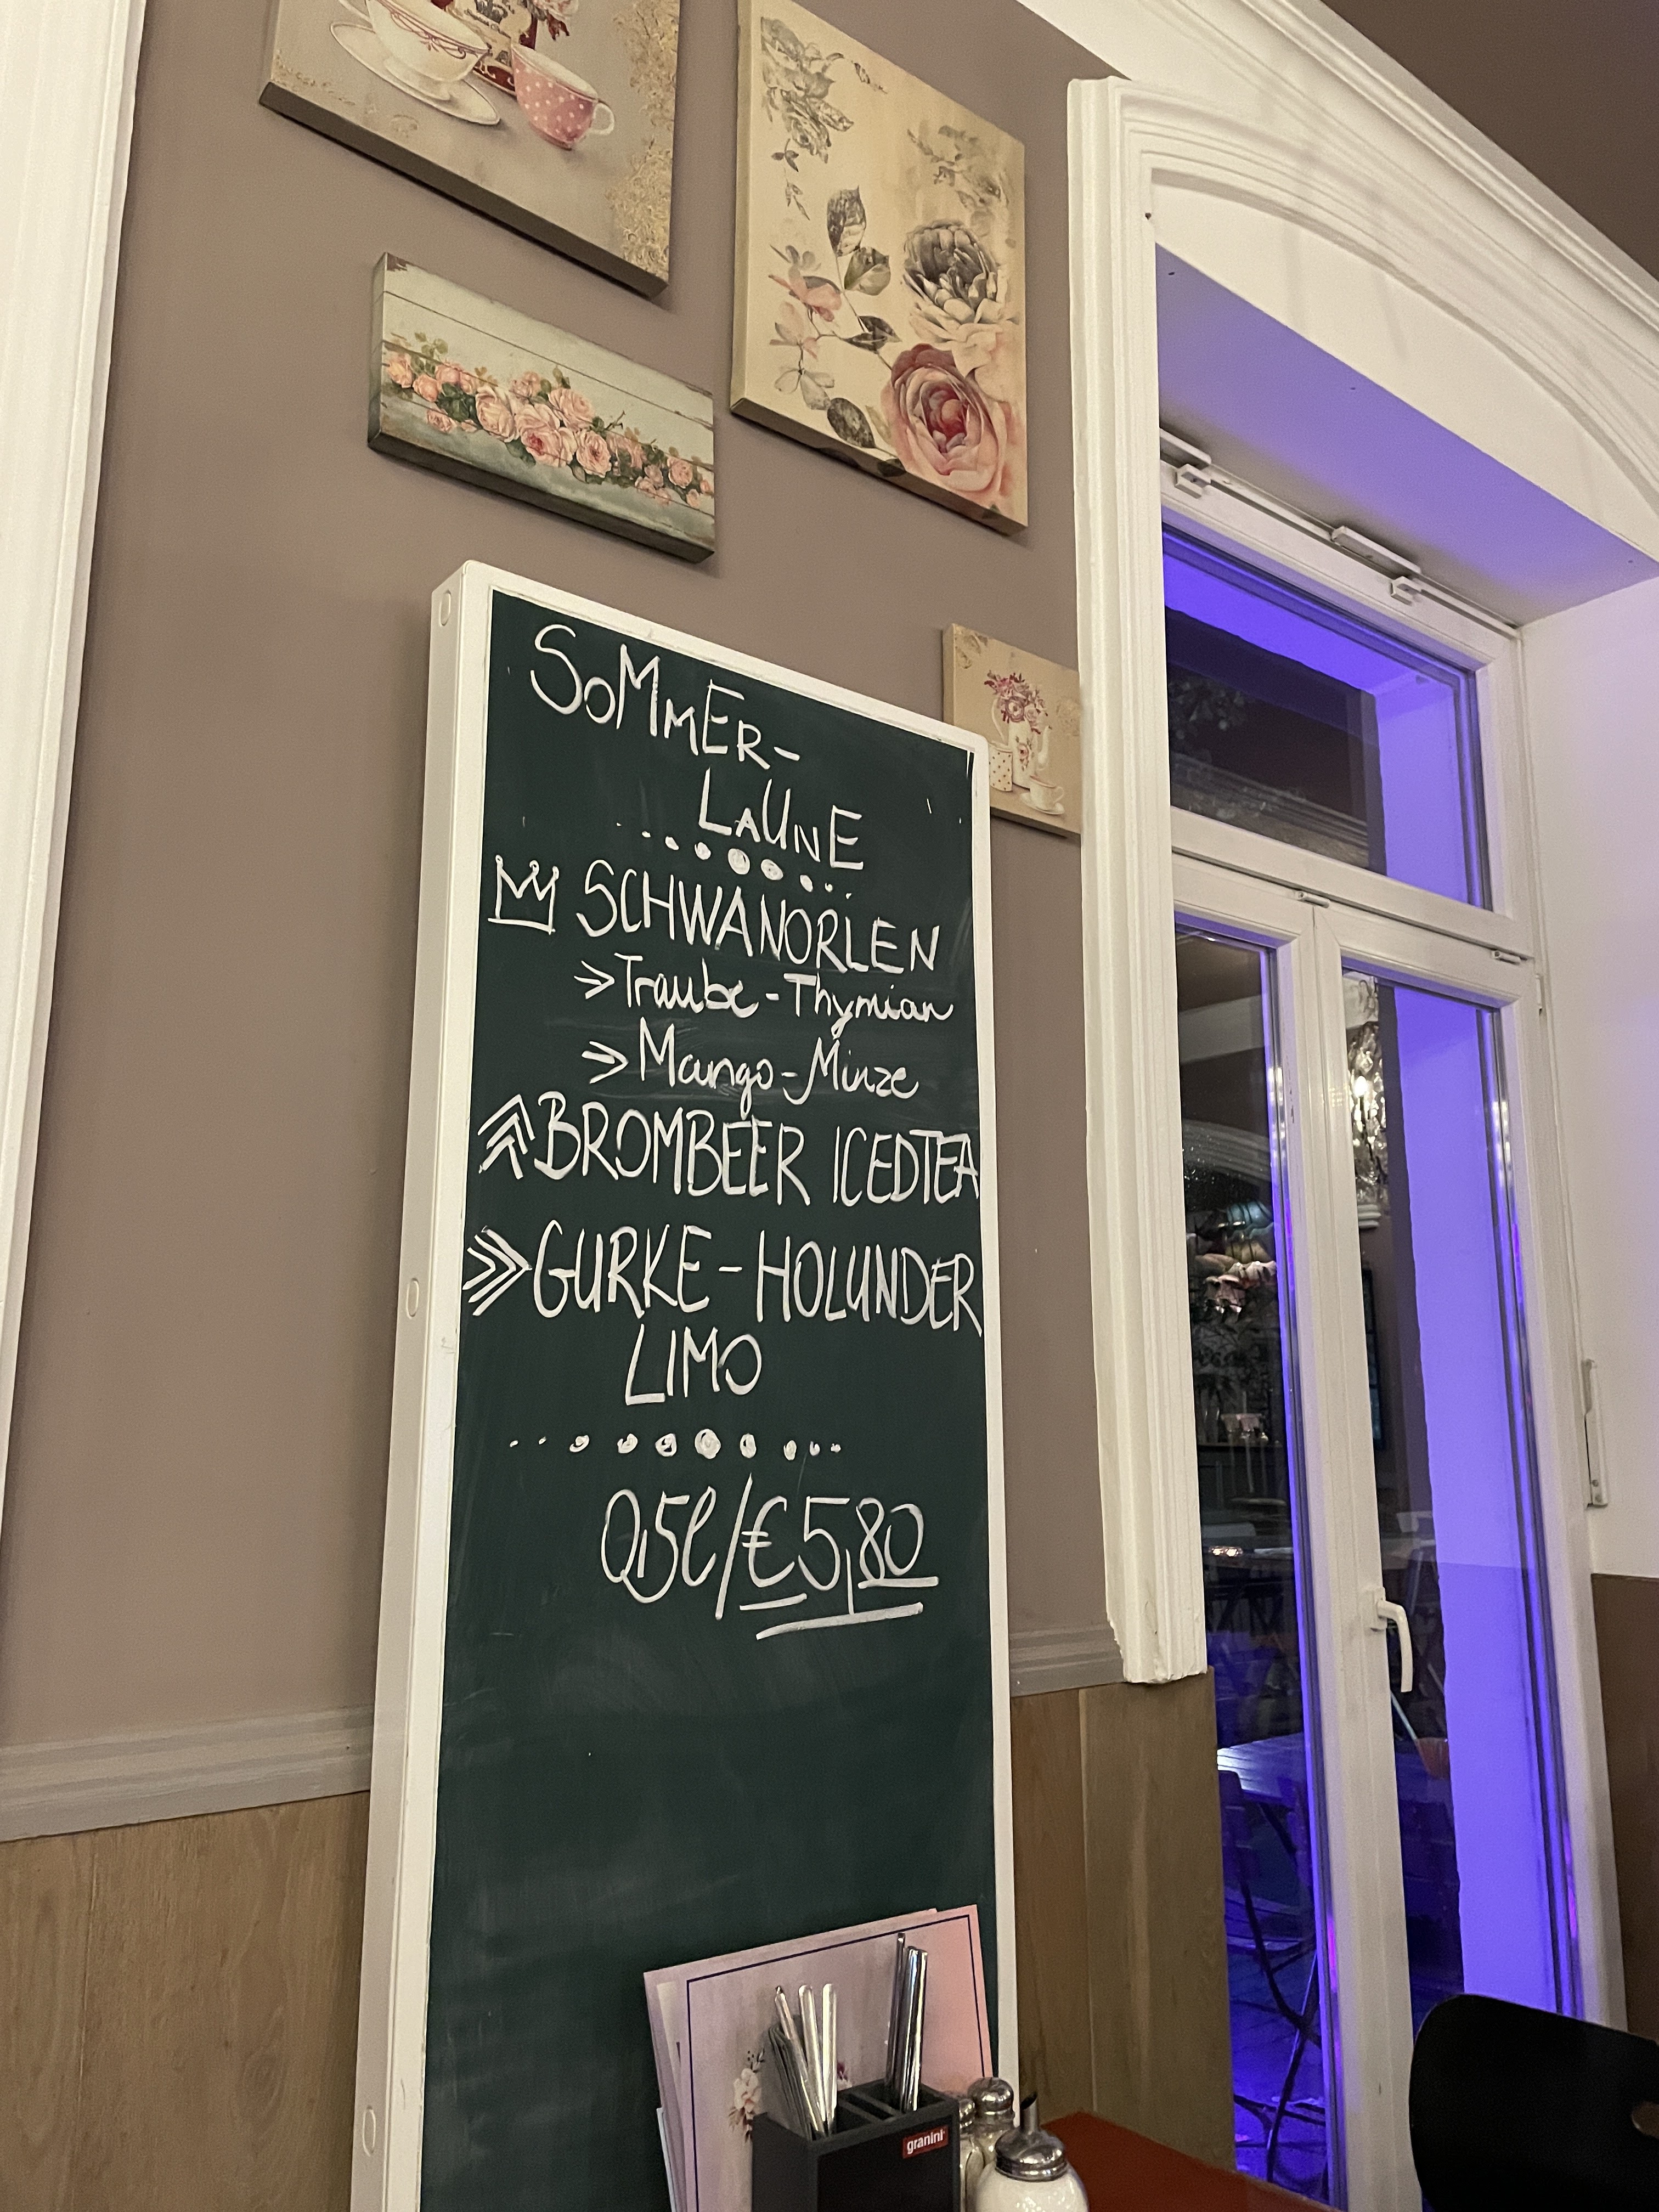 SOMMER-
LAUNE
SCHWANORLEN
Traube-Thymian
Mango-Minze
BROMBEER ICEDTEA
GURKE-HOLUNDER
LIMO
0,5l/€5,80
granini